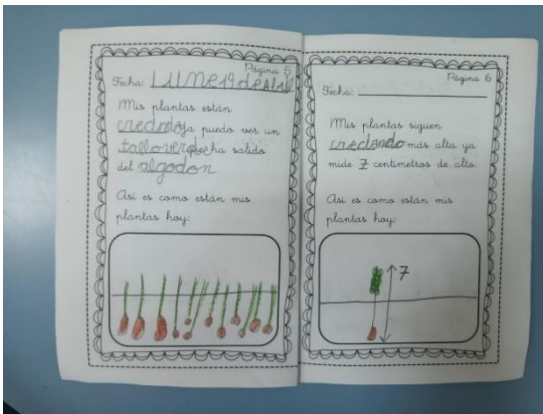 Página 5
Fecha: LUNES 19 de Abril
Mis plantas están
creciendo ya puedo ver un
tallo verde que ha salido
del algodon
Así es como están mis
plantas hoy:
Página 6
Fecha:
Mis plantas siguen
creciendo más alta ya
mide 7 centímetros de alto.
Así es como están mis
plantas hoy:
7